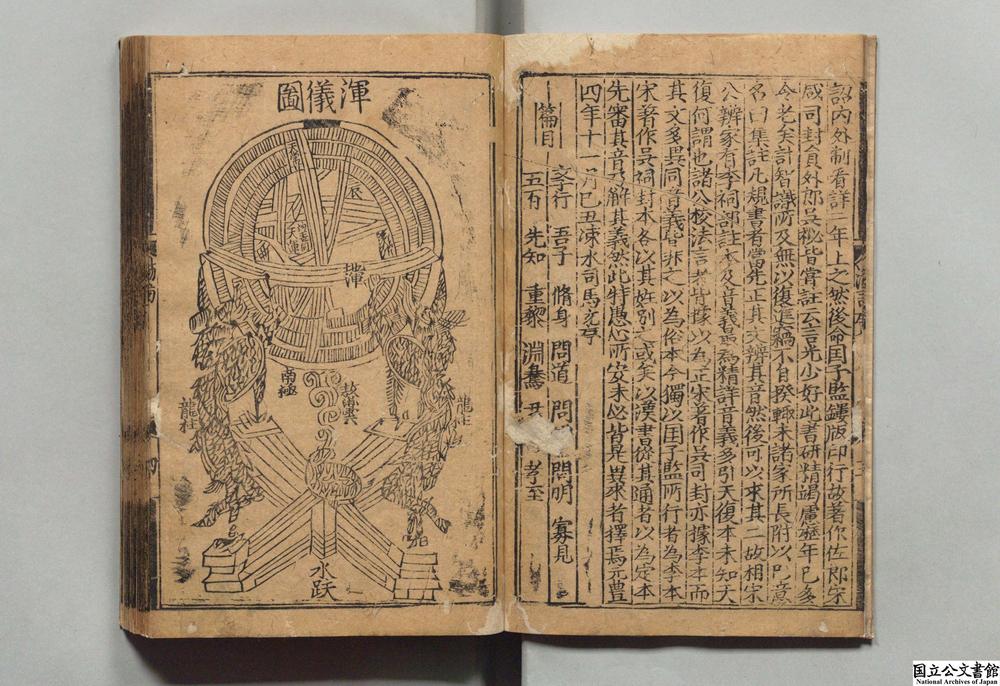 詔内外制看詳二年上之然後命国子監鏤版印行故著作佐郎宋
咸司封員外郎吳祕皆嘗註云言光少好此書研精竭慮歷年已多
今老矣計智識所及無以復進竊不自揆輒采諸家所長附以己意
名曰集註凡觀書者當先正其文辨其音然後可以求其二故相宋
公辨家有李祠部註本及音義最為精詳音義多引天復本未知天
復何謂也諸公校法言者皆據以為正宋著作吳司封亦據李本而
其文多異同音義皆非之以為俗本今獨以国子監所行者為李本
宋著作吳祠封本各以其姓別之或矣以漢書從其通者以為定本
先審其音乃解其義然此特愚心所安未必皆是異求者擇焉元豊
四年十一月己丑涑水司馬光序
篇目 李行 吾子 脩身 問道 問 問明 寡見
五百 先知 重黎 淵騫 君 孝至
渾儀圖
天運
辰
渾
南極
龍柱
龍柱
水趺
四
国立公文書館
National Archives of Japan